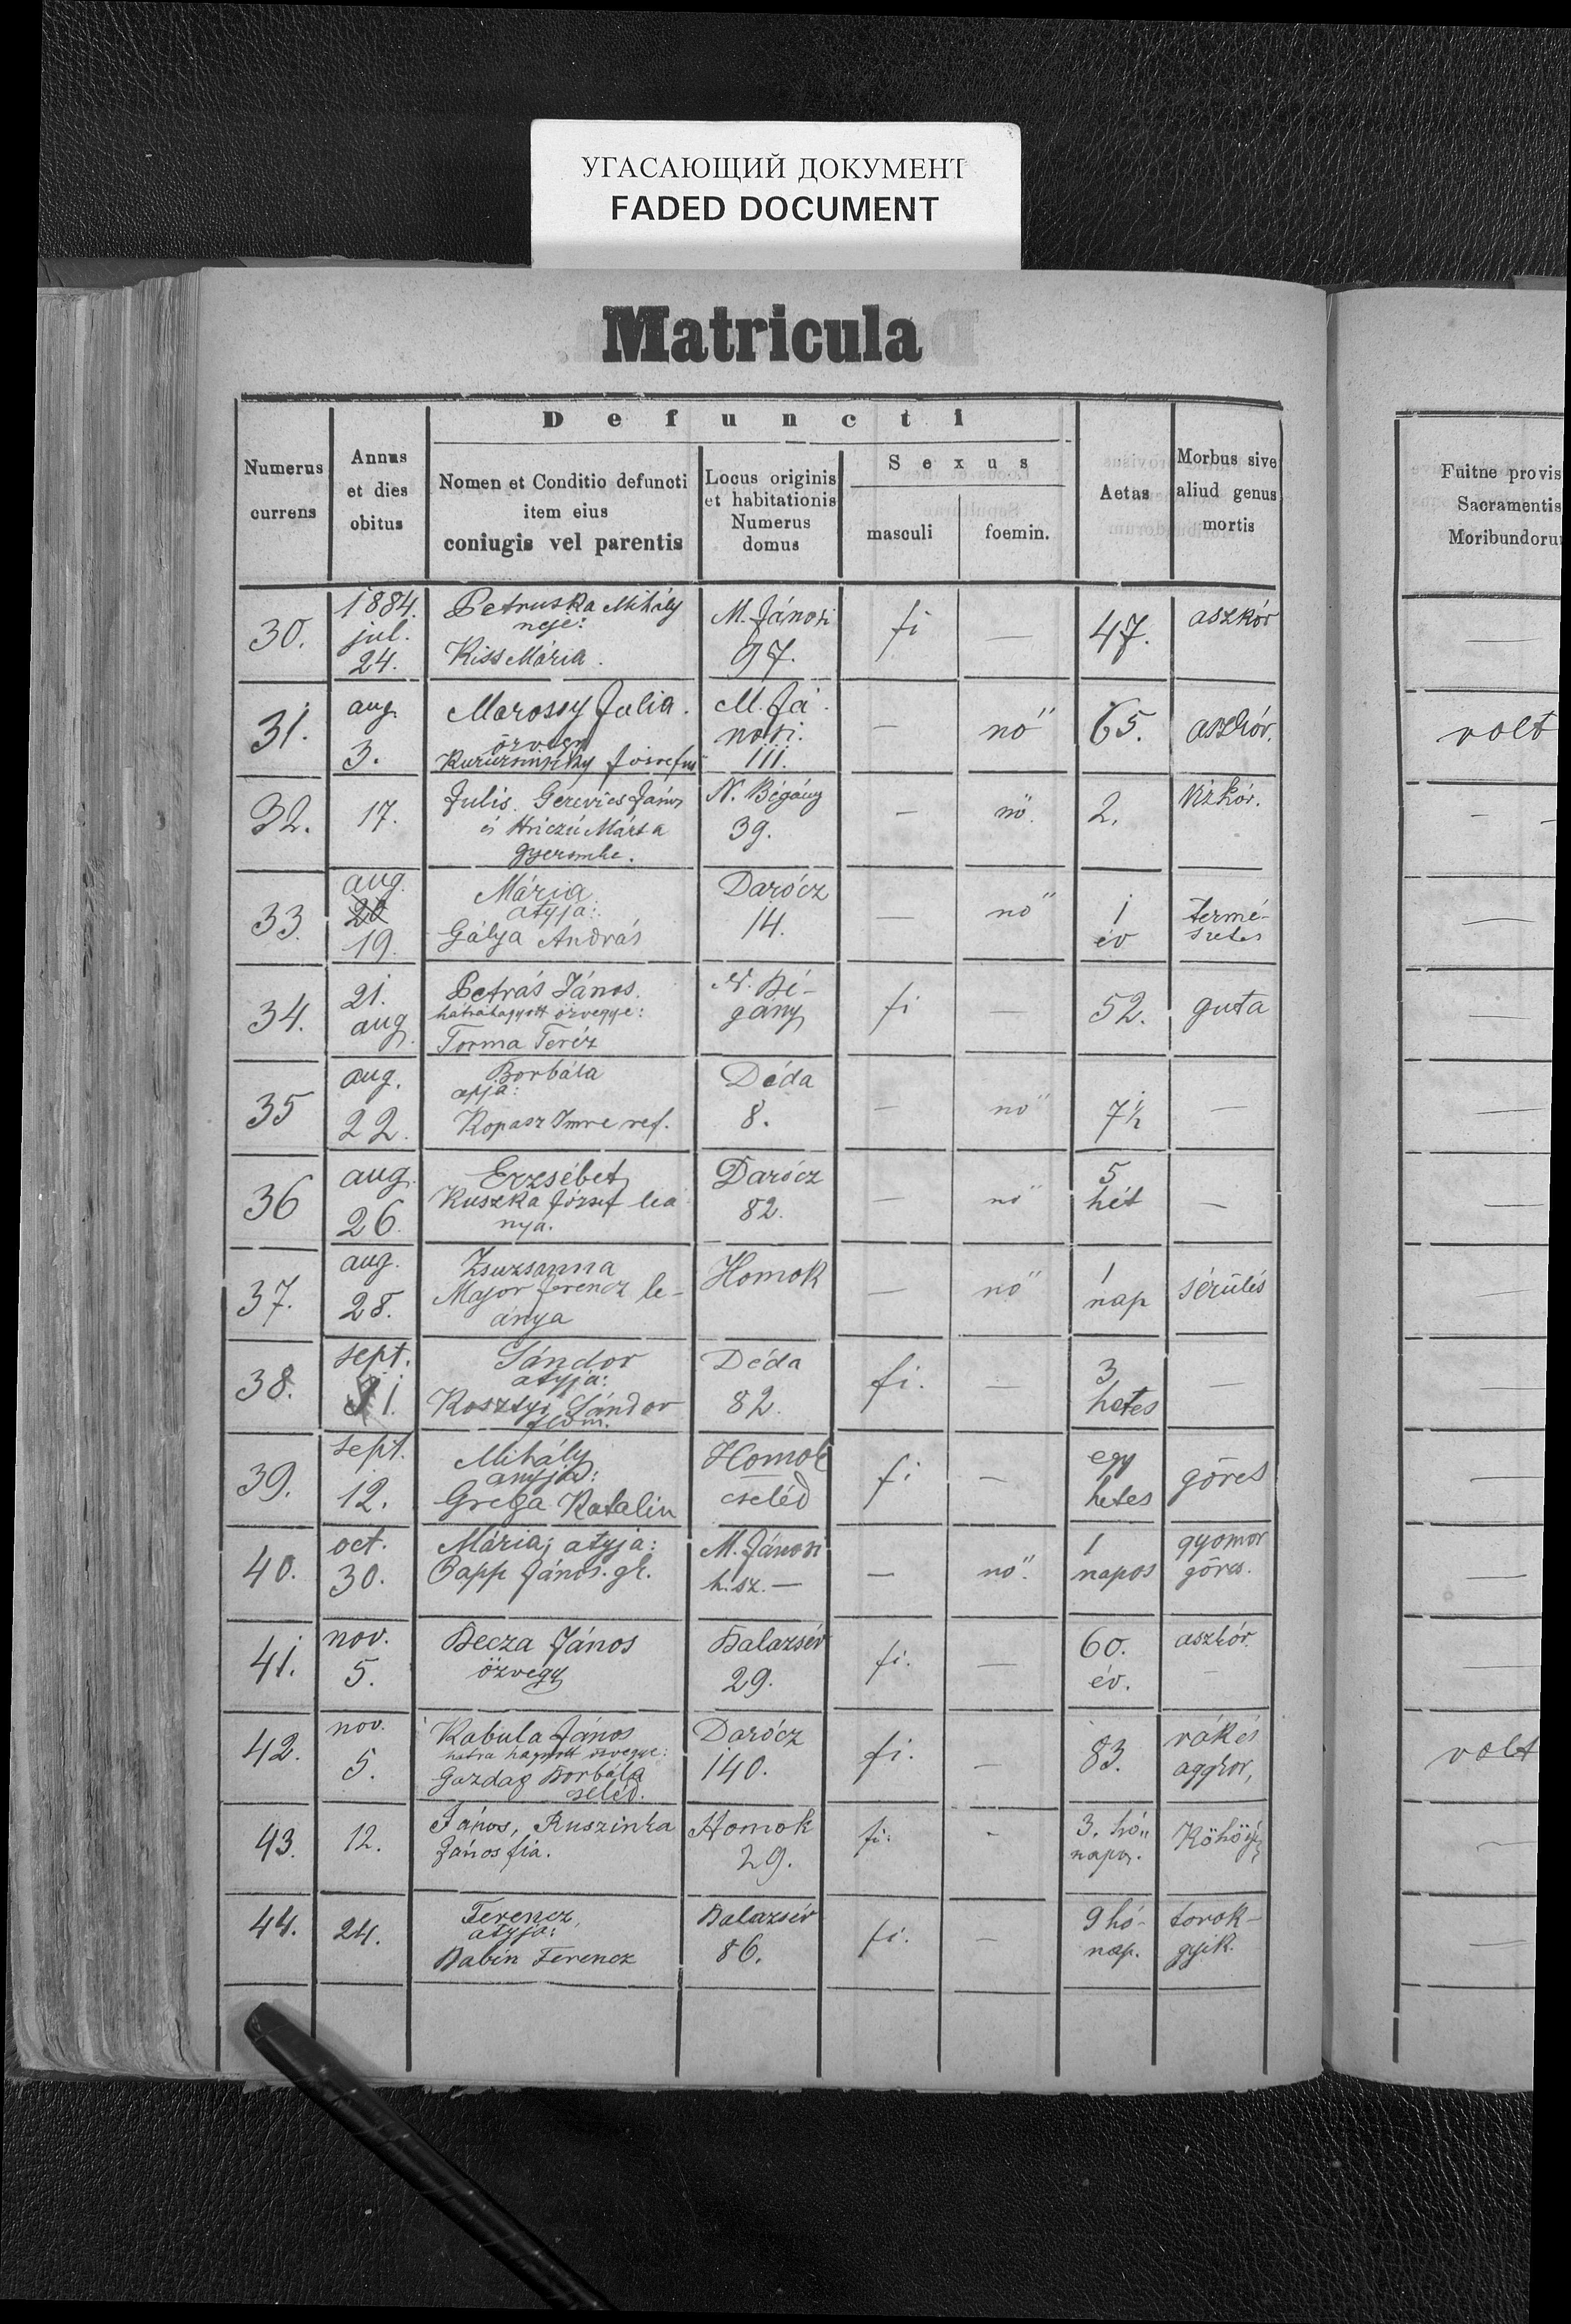 УГАСАЮЩИЙ ДОКУМЕНТ
FADED DOCUMENT
Matricula
Defuncti
Numerus currens
Annus et dies obitus
Nomen et Conditio defuncti item eius coniugis vel parentis
Locus originis et habitationis Numerus domus
Sexus
masculi
foemin.
Aetas
Morbus sive aliud genus mortis
Fuitne provis
Sacramentis
Moribundoru
30. 1884. jul. 24. Petruska Mihály neje: Kiss Mária. M. Jánosi 97. fi — 47. aszkór —
31. aug. 3. Marossy Julia. özvegy M. Jánosi. 111. — nő 65. aszkór. volt
32. 17. Julis. Gerevics János és Hriczú Márta gyermke. N. Bégány 39. — nő. 2. Vizkór. - -
33. aug. 20 19. Mária atyja: Gálya András Darócz 14. — nő 1 év természetes —
34. 21. aug. Petrás János. hátrahagyott özvegye: Torma Teréz N. Bégány fi — 52. guta —
35 aug. 22. Borbála apja: Kopasz Imre ref. Déda 8. — nő 7½ — —
36 aug. 26. Erzsébet Kuszka József leánya. Darócz 82. — nő 5 hét — —
37. aug. 28. Zsuzsanna Major Ferencz leánya Homok — nő 1 nap sérülés —
38. sept. 1. Sándor atyja: Kosztyi Sándor Déda 82. fi. — 3 hetes — —
39. sept. 12. Mihály anyja: Grega Katalin Homok cseléd fi — egy hetes görcs —
40. oct. 30. Mária; atyja: Papp János. gk. M. Jánosi h. sz. — — nő. 1 napos gyomor görcs. —
41. nov. 5. Becza János özvegy Balazsér 29. fi. — 60. év. aszkór. —
42. nov. 5. Kabula János hátra hagyott özvegye: Gazdag Borbála cseléd. Darócz 140. fi. — 83. rák és aggkor, volt
43. 12. János, Ruszinka János fia. Homok 29. fi. - 3. hónapos. —
44. 24. Ferencz, atyja: Babin Ferencz Balazsér 86. fi. — 9 hónap. torokgyik. —